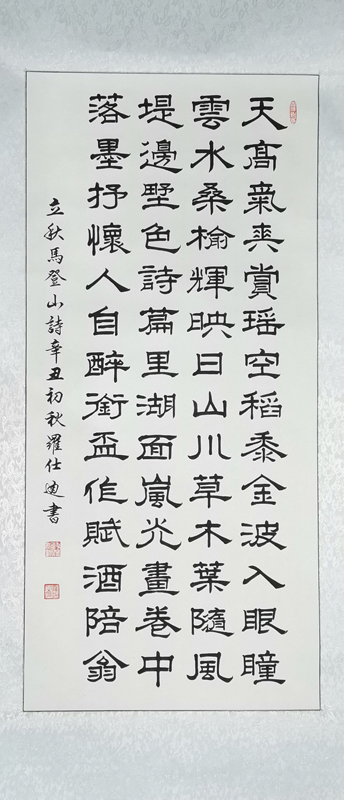 天髙氣爽賞瑶空稻黍金波入眼瞳
雲水桑榆輝映日山川草木葉隨風
堤邊墅色詩篇里湖面嵐光畫卷中
落墨抒懷人自醉銜盃作賦酒陪翁
立秋馬登山詩辛丑初秋羅仕迪書